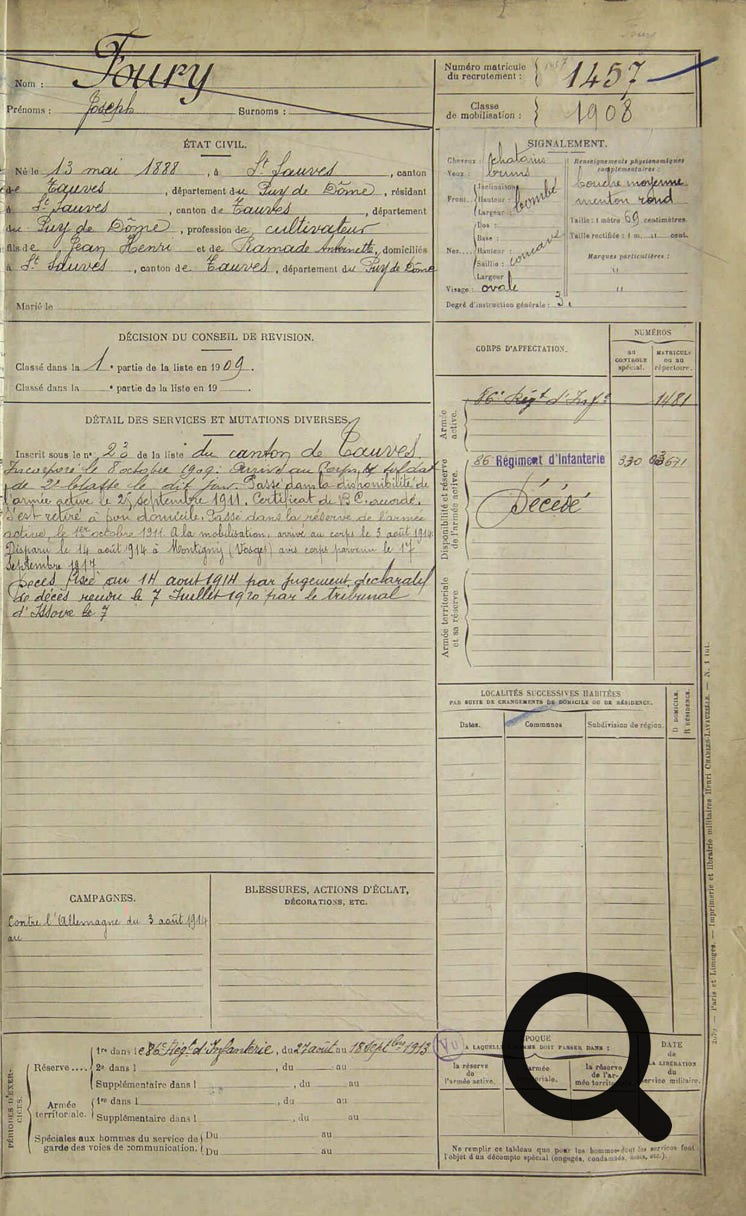 Nom : Foury
Prénoms : Joseph Surnoms :
Numéro matricule du recrutement : 1457
Classe de mobilisation : 1908
ÉTAT CIVIL.
Né le 13 mai 1888, à St Sauves, canton
de Tauves, département du Puy de Dôme, résidant
à St Sauves, canton de Tauves, département
du Puy de Dôme, profession de cultivateur
fils de Jean Henri et de Ramade Antoinette, domiciliés
à St Sauves, canton de Tauves, département du Puy de Dôme
Marié le
SIGNALEMENT.
Cheveux : chatains
Yeux : bruns
Front. Inclinaison : Hauteur : Largeur : bombé
Nez. Dos : Base : Hauteur : Saillie : Largeur : concave
Visage : ovale
Degré d'instruction générale : 3
Renseignements physionomiques complémentaires :
bouche moyenne
menton rond
Taille : 1 mètre 69 centimètres.
Taille rectifiée : 1 m. " cent.
Marques particulières :
"
"
DÉCISION DU CONSEIL DE REVISION.
Classé dans la 1e partie de la liste en 1909.
Classé dans la e partie de la liste en 19
DÉTAIL DES SERVICES ET MUTATIONS DIVERSES.
Inscrit sous le n° 23 de la liste du canton de Tauves.
Incorporé le 8 octobre 1909. Arrivé au Corps et soldat
de 2e classe le dit jour. Passé dans la disponibilité de
l'armée active le 25 septembre 1911. Certificat de B.C. accordé.
S'est retiré à son domicile. Passé dans la réserve de l'armée
active, le 1er octobre 1911. A la mobilisation, arrivé au corps le 3 août 1914.
Disparu le 14 août 1914 à Montigny (Vosges) avis corps parvenu le 17
Septembre 1917
Décès fixé au 14 aout 1914 par jugement déclaratif
de décès rendu le 7 Juillet 1920 par le tribunal
d'Issoire le 7
CORPS D'AFFECTATION.
NUMÉROS
AU CONTROLE SPÉCIAL.
MATRICULE OU AU RÉPERTOIRE.
Armée active.
86e Régt d'Infie 1481
Disponibilité et réserve de l'armée active.
86 Régiment d'Infanterie 330
Décédé
Armée territoriale et sa réserve
LOCALITÉS SUCCESSIVES HABITÉES
PAR SUITE DE CHANGEMENTS DE DOMICILE OU DE RÉSIDENCE.
Dates.
Communes
Subdivision de région.
D DOMICILE.
R RÉSIDENCE.
CAMPAGNES.
Contre l'Allemagne du 3 août 1914
au
BLESSURES, ACTIONS D'ÉCLAT,
DÉCORATIONS, ETC.
PÉRIODES D'EXERCICES.
Réserve....
1re dans le 86e Régt d'Infanterie, du 27 août au 18 Septbre 1913
2e dans l , du au
Supplémentaire dans l , du au
Armée territoriale.
1re dans l , du au
Supplémentaire dans l , du au
Spéciales aux hommes du service de garde des voies de communication.
Du au
Du au
Vu
A LAQUELLE
DOIT PASSER DANS :
la réserve de l'armée active.
la réserve de l'armée territoriale
DATE de LA LIBÉRATION du service militaire.
Ne remplir ce tableau que pour les hommes dont les services font
l'objet d'un décompte spécial (engagés, condamnés, omis, etc.).
Paris et Limoges. — Imprimerie et librairie militaires Henri CHARLES-LAVAUZELLE. —